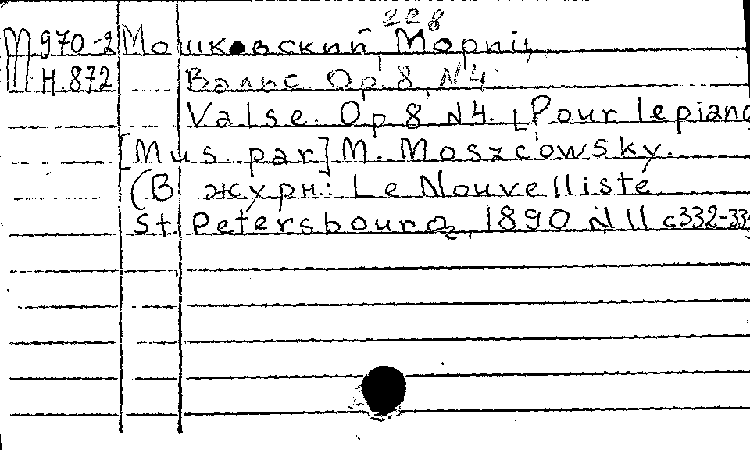 228
М 970-2 Мошковский, Мориц
Н.872 Вальс Op. 8, N4.
Valse. Op 8 N4. [Pour le piano
[Mus par] M. Moszcowsky.
(В журн: Le Nouvelliste
St. Petersbourg, 1890 N 11 с 332-33